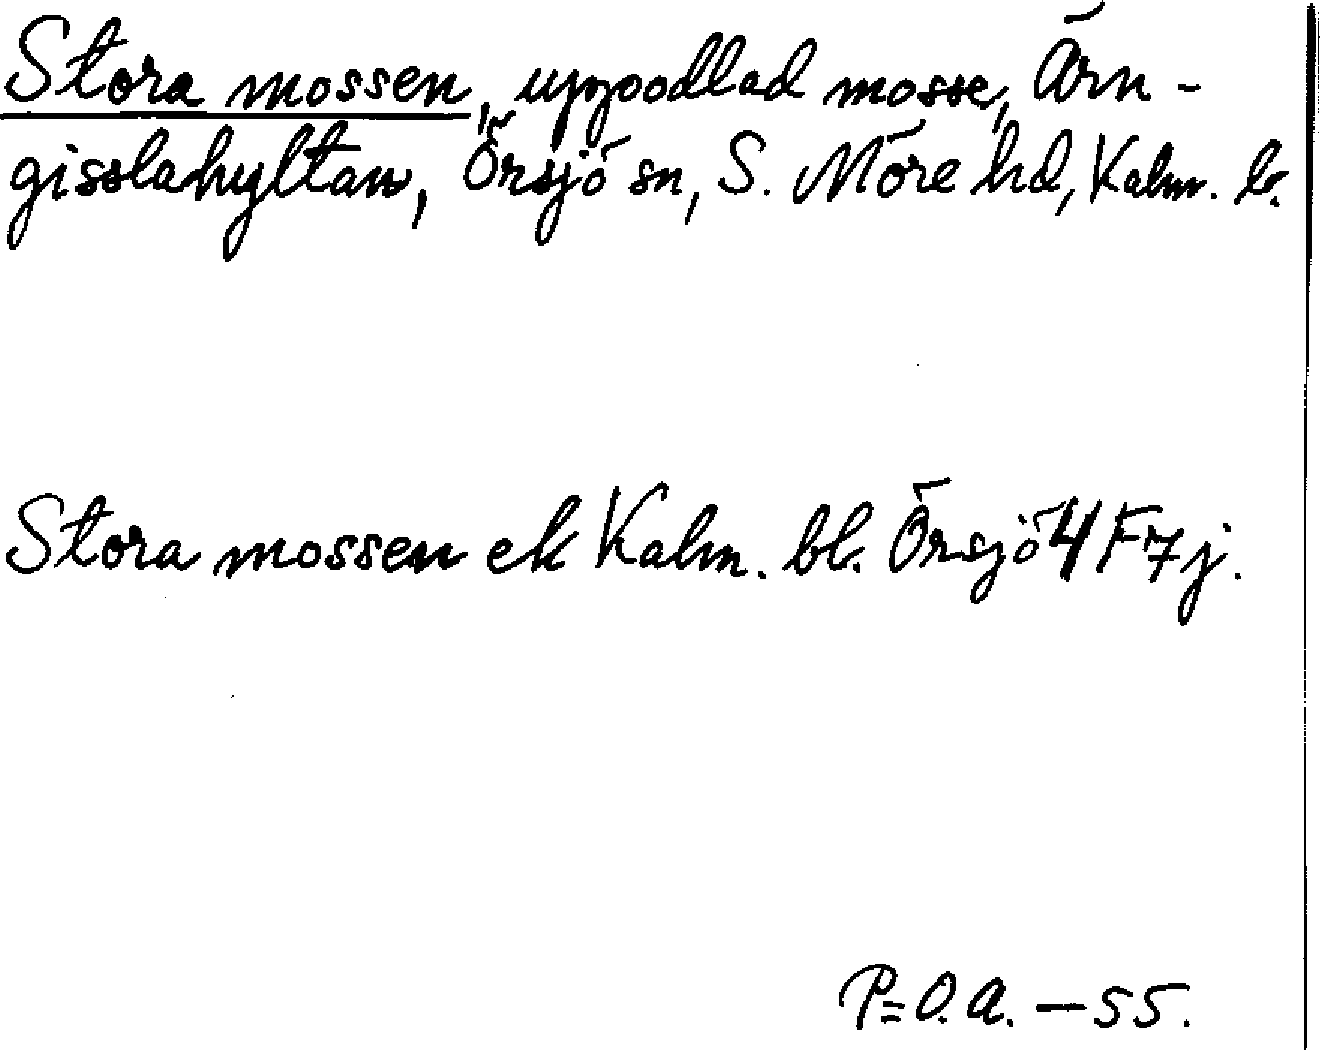 Stora mossen, uppodlad mosse, Ärn-
gisslahyltan, Örsjö sn, S. Möre hd, Kalm. l.
Stora mossen ek Kalm. bl. Örsjö 4F7j.
P=O.A. — 55.